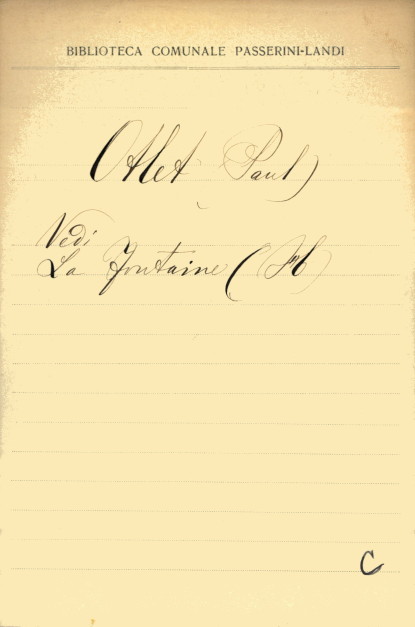 BIBLIOTECA COMUNALE PASSERINI-LANDI
Otlet Paul)
Vedi
La Fontaine (H)
C